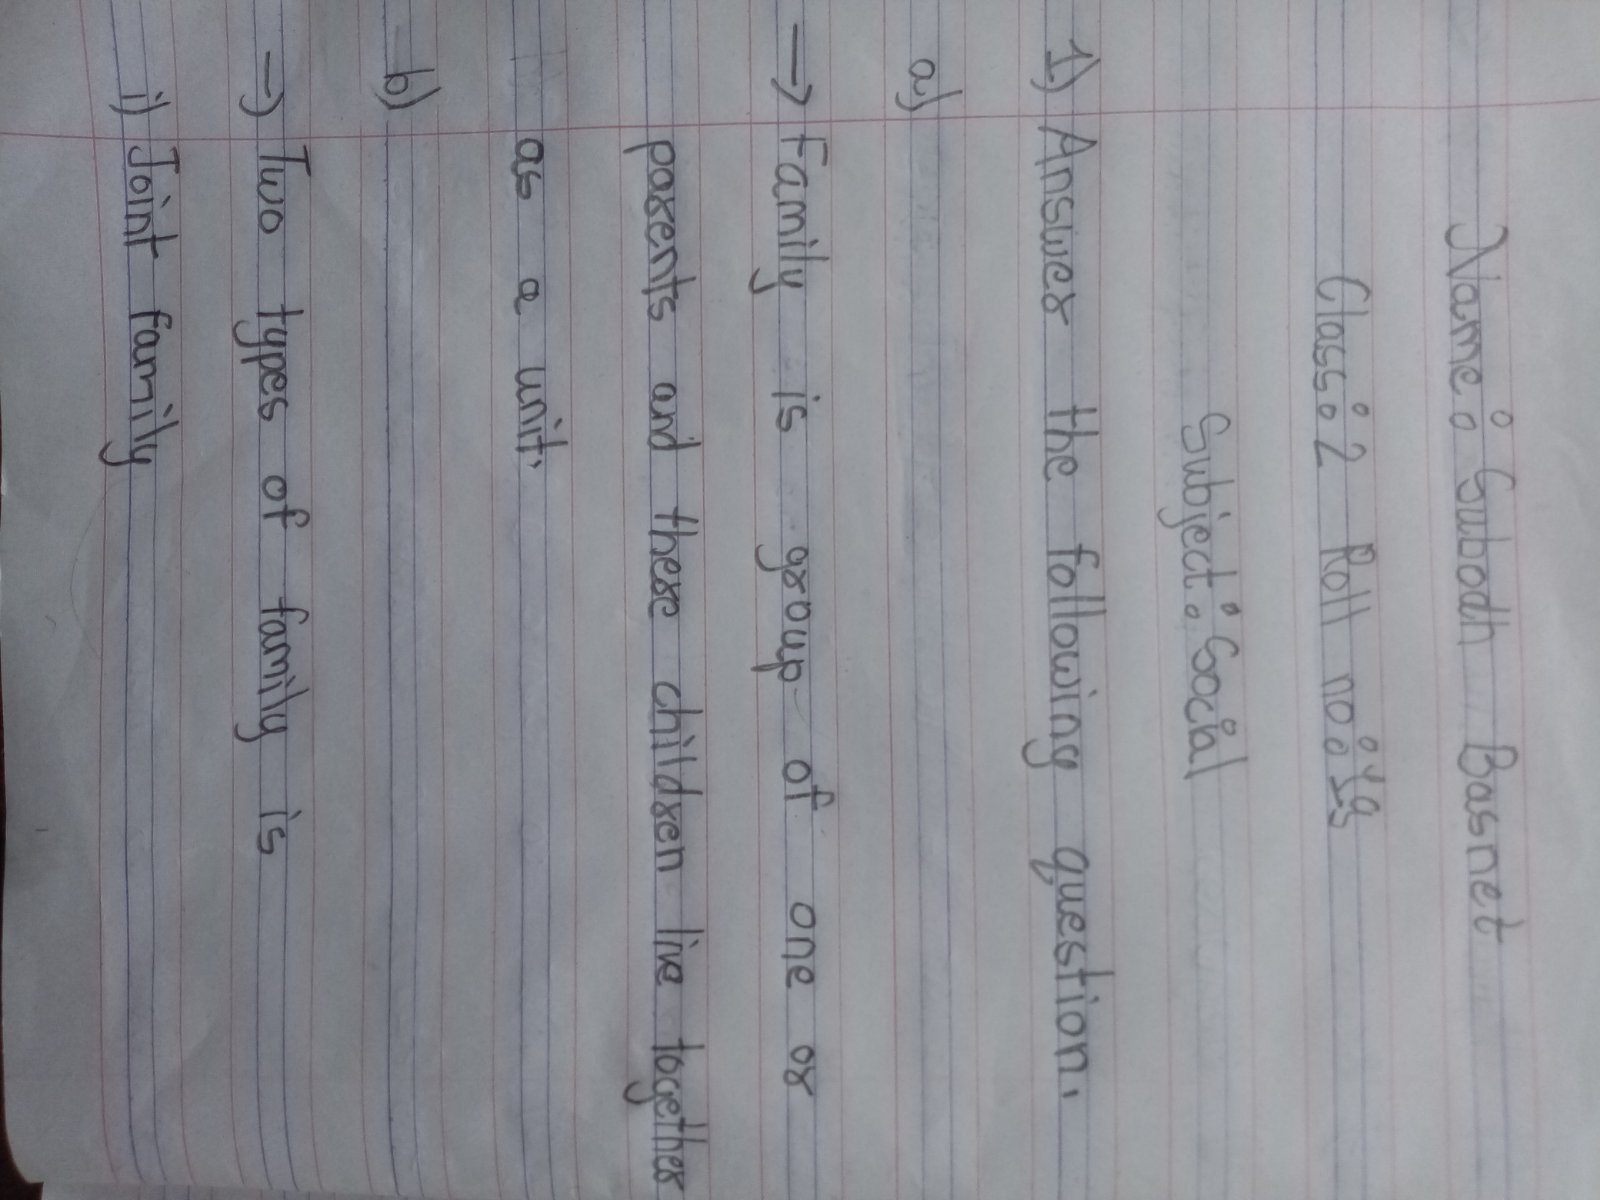 Name: Subodh Basnet
Class: 2 Roll no: 19
Subject: Social
1) Answer the following question.
a)
→ Family is group of one or
parents and these children live together
as a unit.
b)
→ Two types of family is
i) Joint family